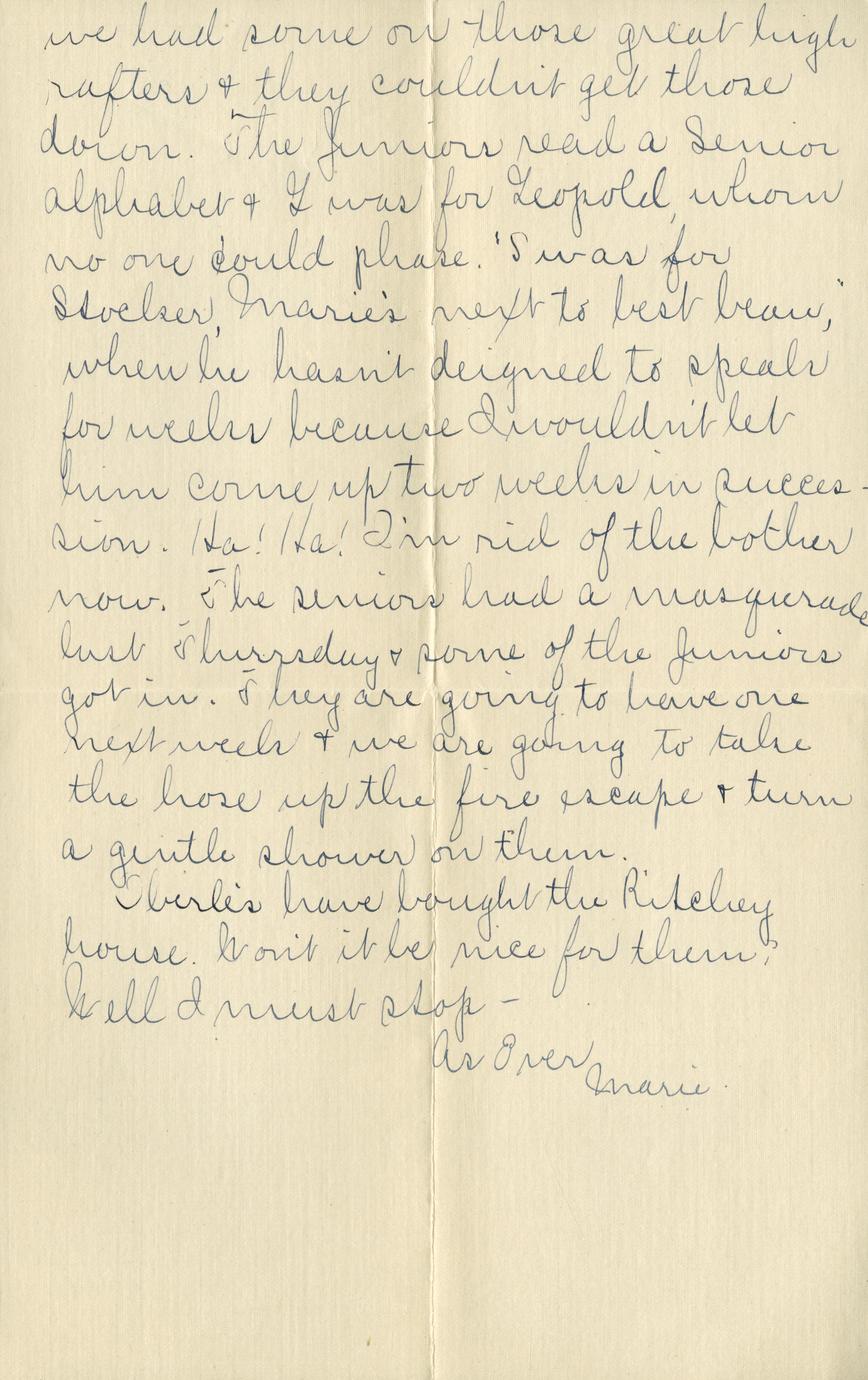 we had some on those great high
rafters & they couldn't get those
down. The Juniors read a Senior
alphabet & L was for Leopold, whom
no one could phase. "S was for
Stoelser, Marie's next to best beau,"
when he hasn't deigned to speak
for weeks because I wouldn't let
him come up two weeks in succes-
sion. Ha! Ha! I'm rid of the bother
now. The seniors had a masquerade
last Thursday & some of the Juniors
got in. They are going to have one
next week & we are going to take
the hose up the fire escape & turn
a gentle shower on them.
have bought the Ritchey
house. Won't it be nice for them?
Well I must stop -
As Ever
Marie.